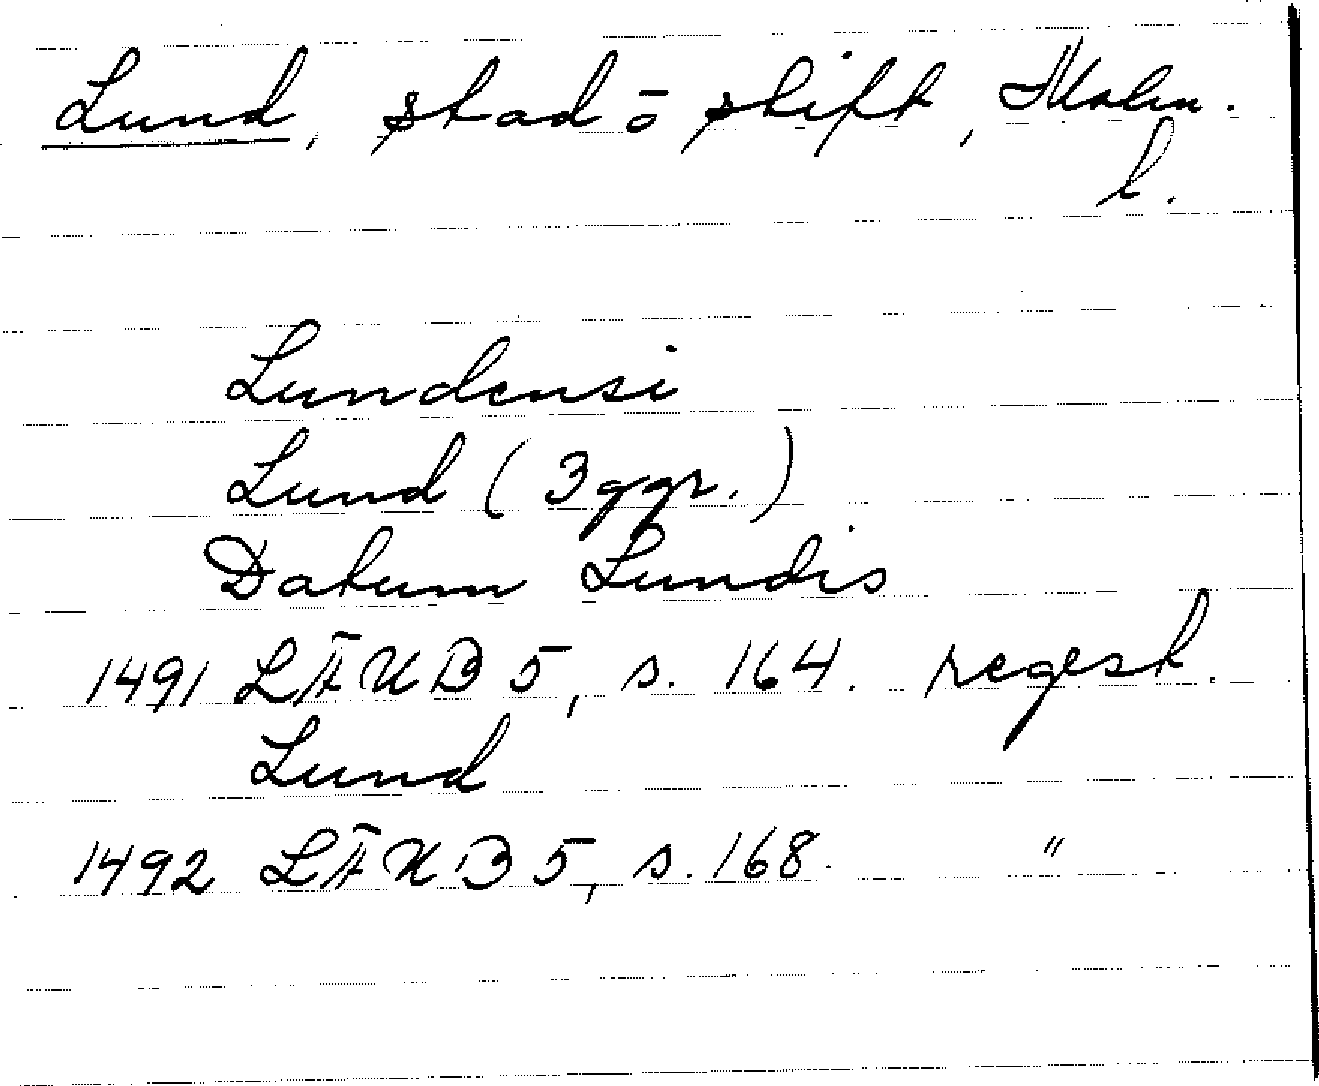 Lund, stad o stift, Malm.
l.
Lundensi
Lund (3 ggr.)
Datum Lundis
1491 LÄUB 5, s. 164. regest.
Lund
1492 LÄUB 5, s. 168. "